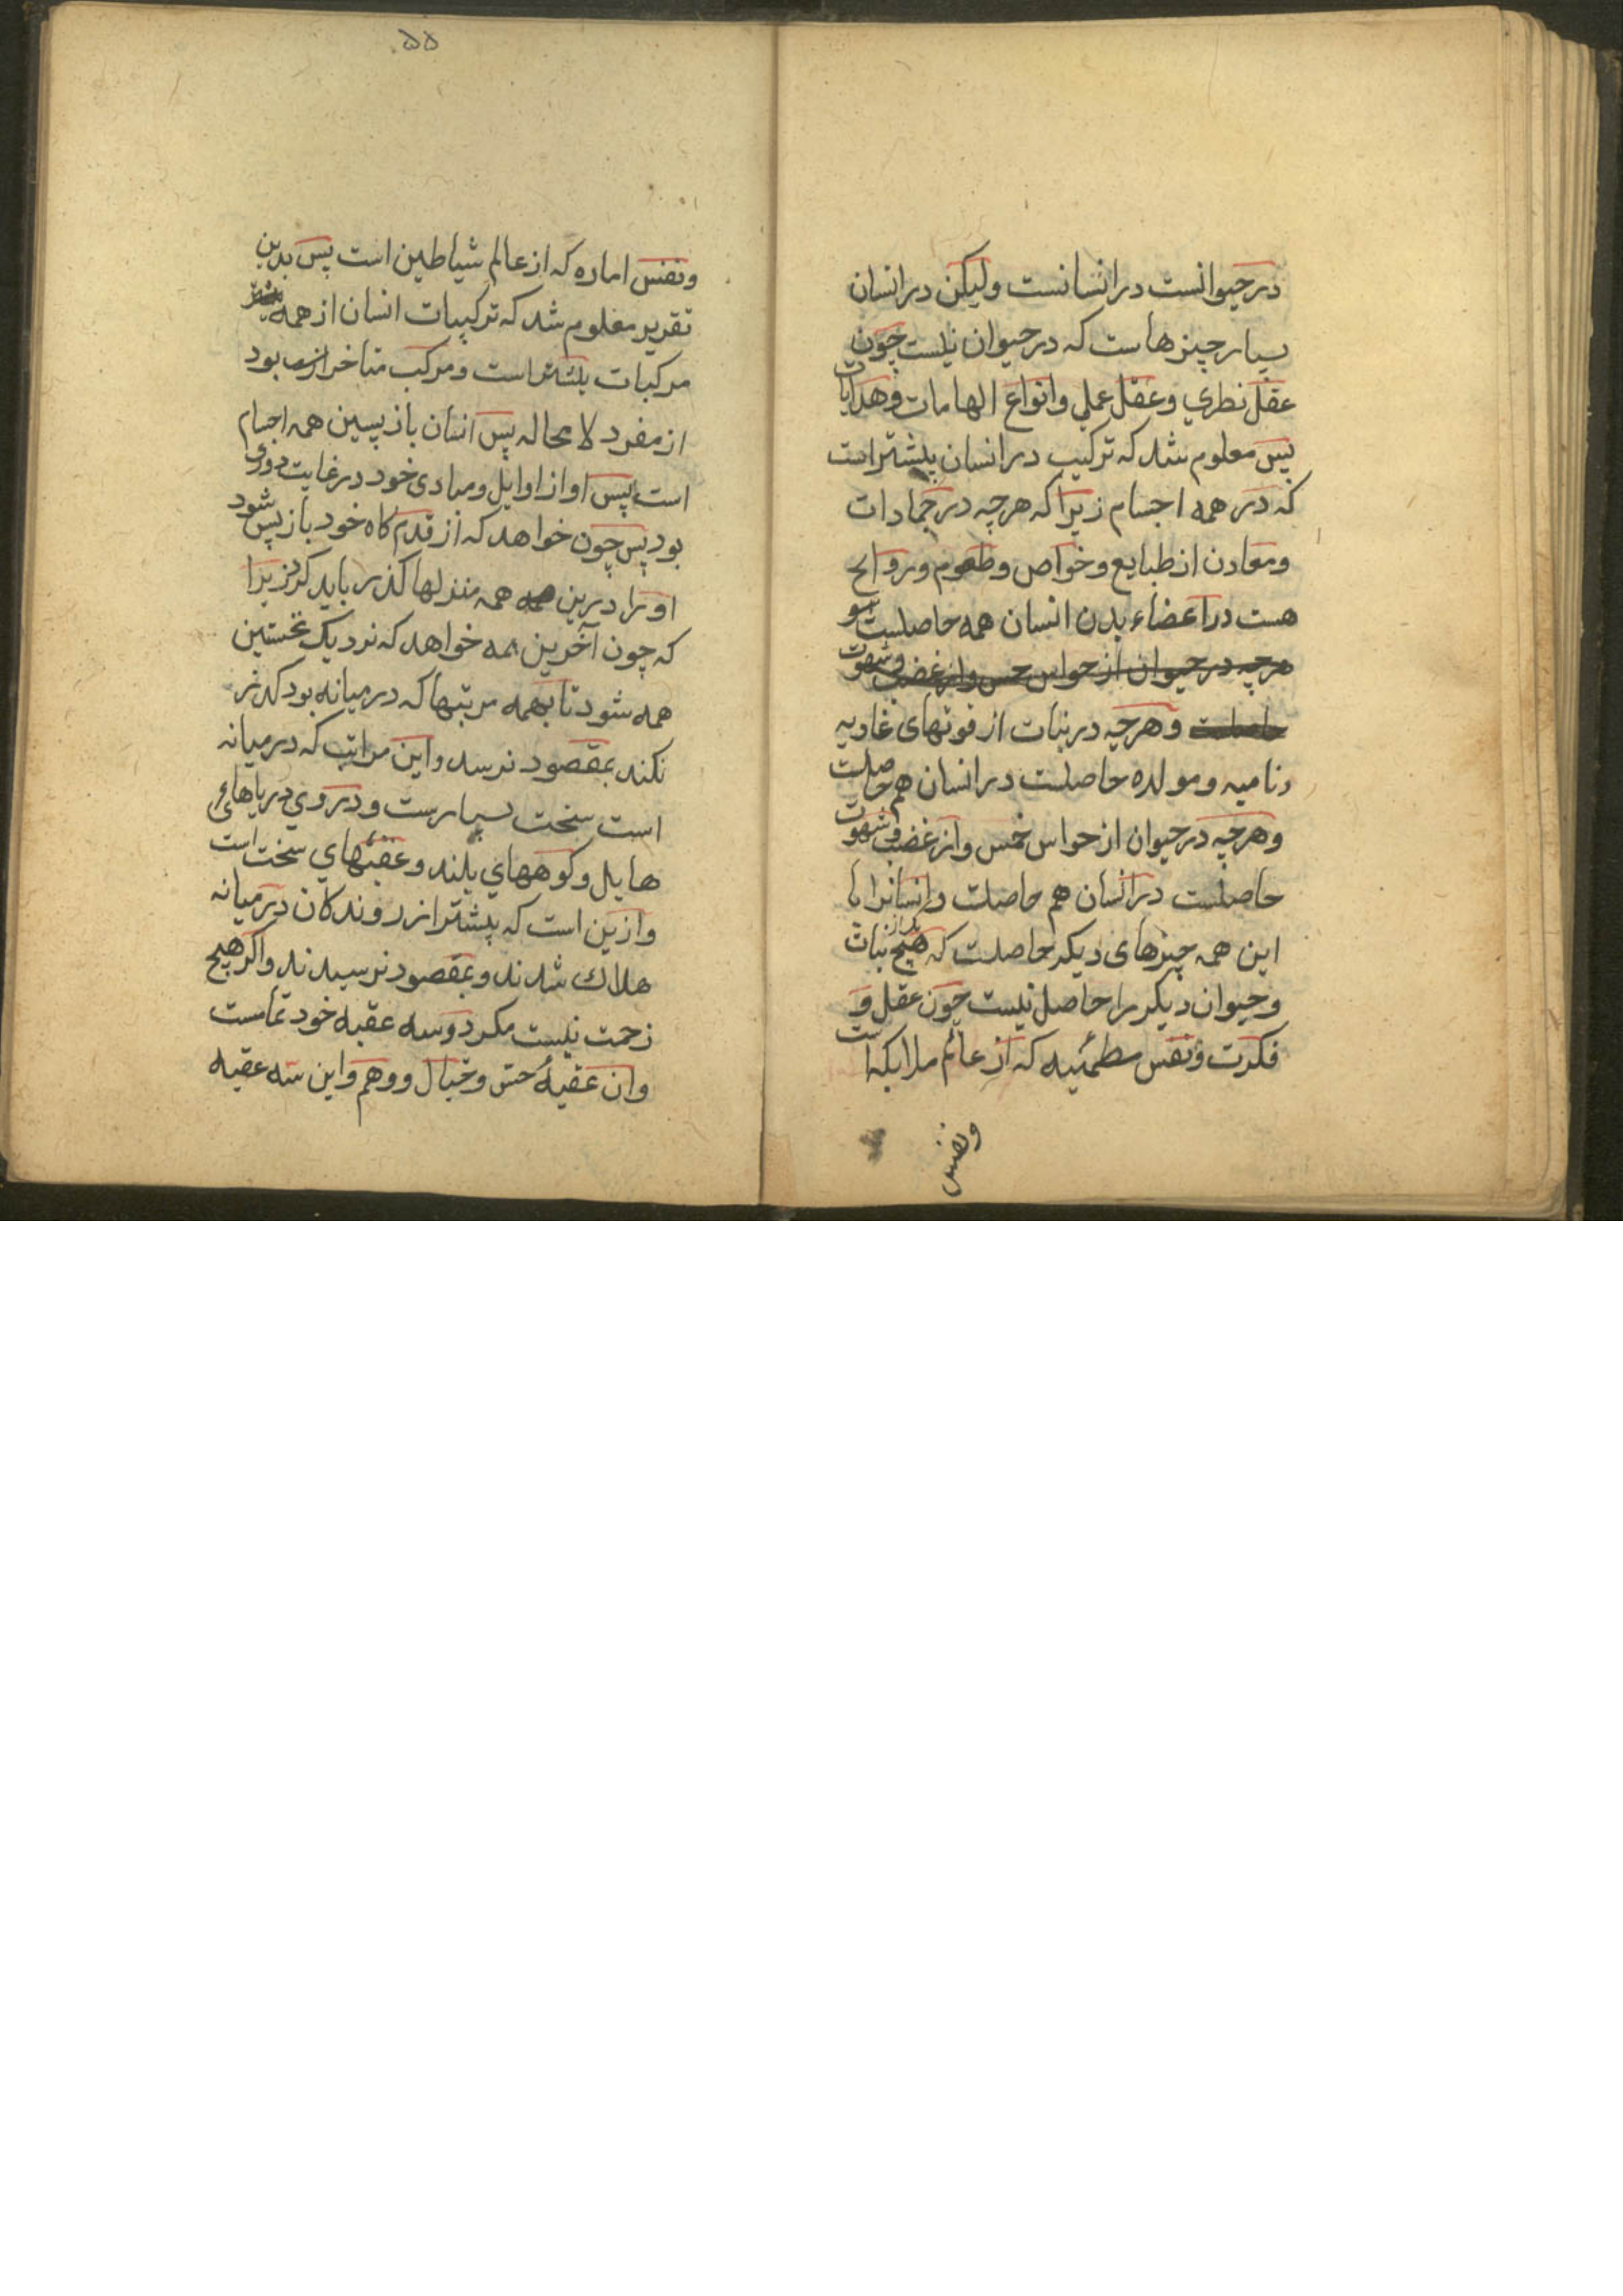 در حیوانست در انسانست ولیکن در انسان
بسیار چیزهاست که در حیوان نیست چون
عقل نظری و عقل عملی و انواع الهامات و هدایات
پس معلوم شد که ترکیب در انسان بیشتر است
که در همه اجسام زیرا که هرچه در جمادات
و معادن از طبایع و خواص و طعوم و روایح
هست در اعضاء بدن انسان همه حاصلست
هرچه در حیوان از حواس خمس و از غضب و شهوت
حاصلست و هرچه در نبات از قوتهای غاذیه
و نامیه و مولده حاصلست در انسان هم حاصلست
و هرچه در حیوان از حواس خمس و از غضب و شهوت
حاصلست در انسان هم حاصلست و انسانرا با
این همه چیزهای دیکر حاصلست که هیچ نبات
و حیوان دیکر را حاصل نیست چون عقل و
فکرت و نفس مطمئنه که از عالم ملایکه است
و نفس
۵۵
و نفس اماره که از عالم شیاطین است پس بدین
تقریر معلوم شد که ترکیبات انسان از همه
مرکبات بیشتر است و مرکب متاخر بود
از مفرد لا محاله پس انسان بازپسین همه اجسام
است پس او از اوایل و مبادی خود در غایت دوری
بود پس چون خواهد که از قدم کاه خود باز پس شود
او را درین همه منزلها کذر باید کرد زیرا
که چون آخرین همه خواهد که نزدیک نخستین
همه شود تا بهمه مرتبها که در میانه بود کذر
نکند بمقصود نرسد و این مراتب که در میانه
است سخت بسیارست و در وی دریاهای
هایل و کوههای بلند و عقبهای سخت است
و ازین است که بیشتر از روندکان در میانه
هلاک شدند و بمقصود نرسیدند و اکر هیچ
زحمت نیست مکر دو سه عقبه خود تمامست
و ان عقبهٔ حس و خیال و وهم و این سه عقبه